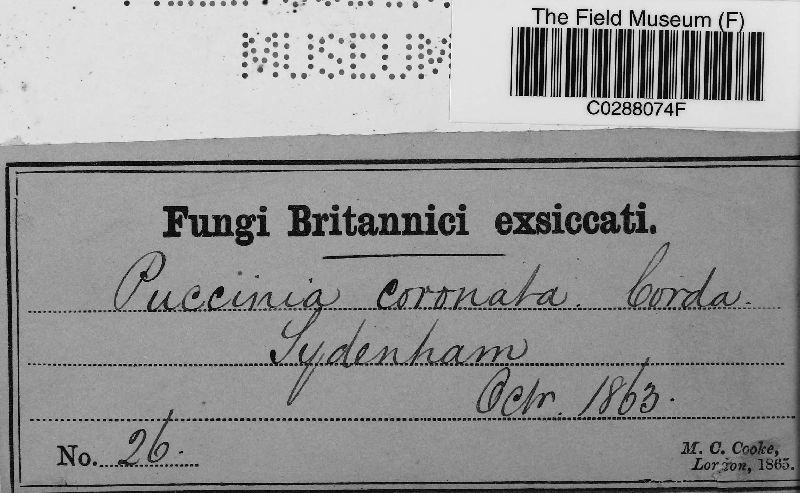 MUSEUM
The Field Museum (F)
C0288074F
Fungi Britannici exsiccati.
Puccinia coronata. Corda.
Sydenham
Octr. 1863.
No. 26.
M. C. Cooke,
London, 1865.